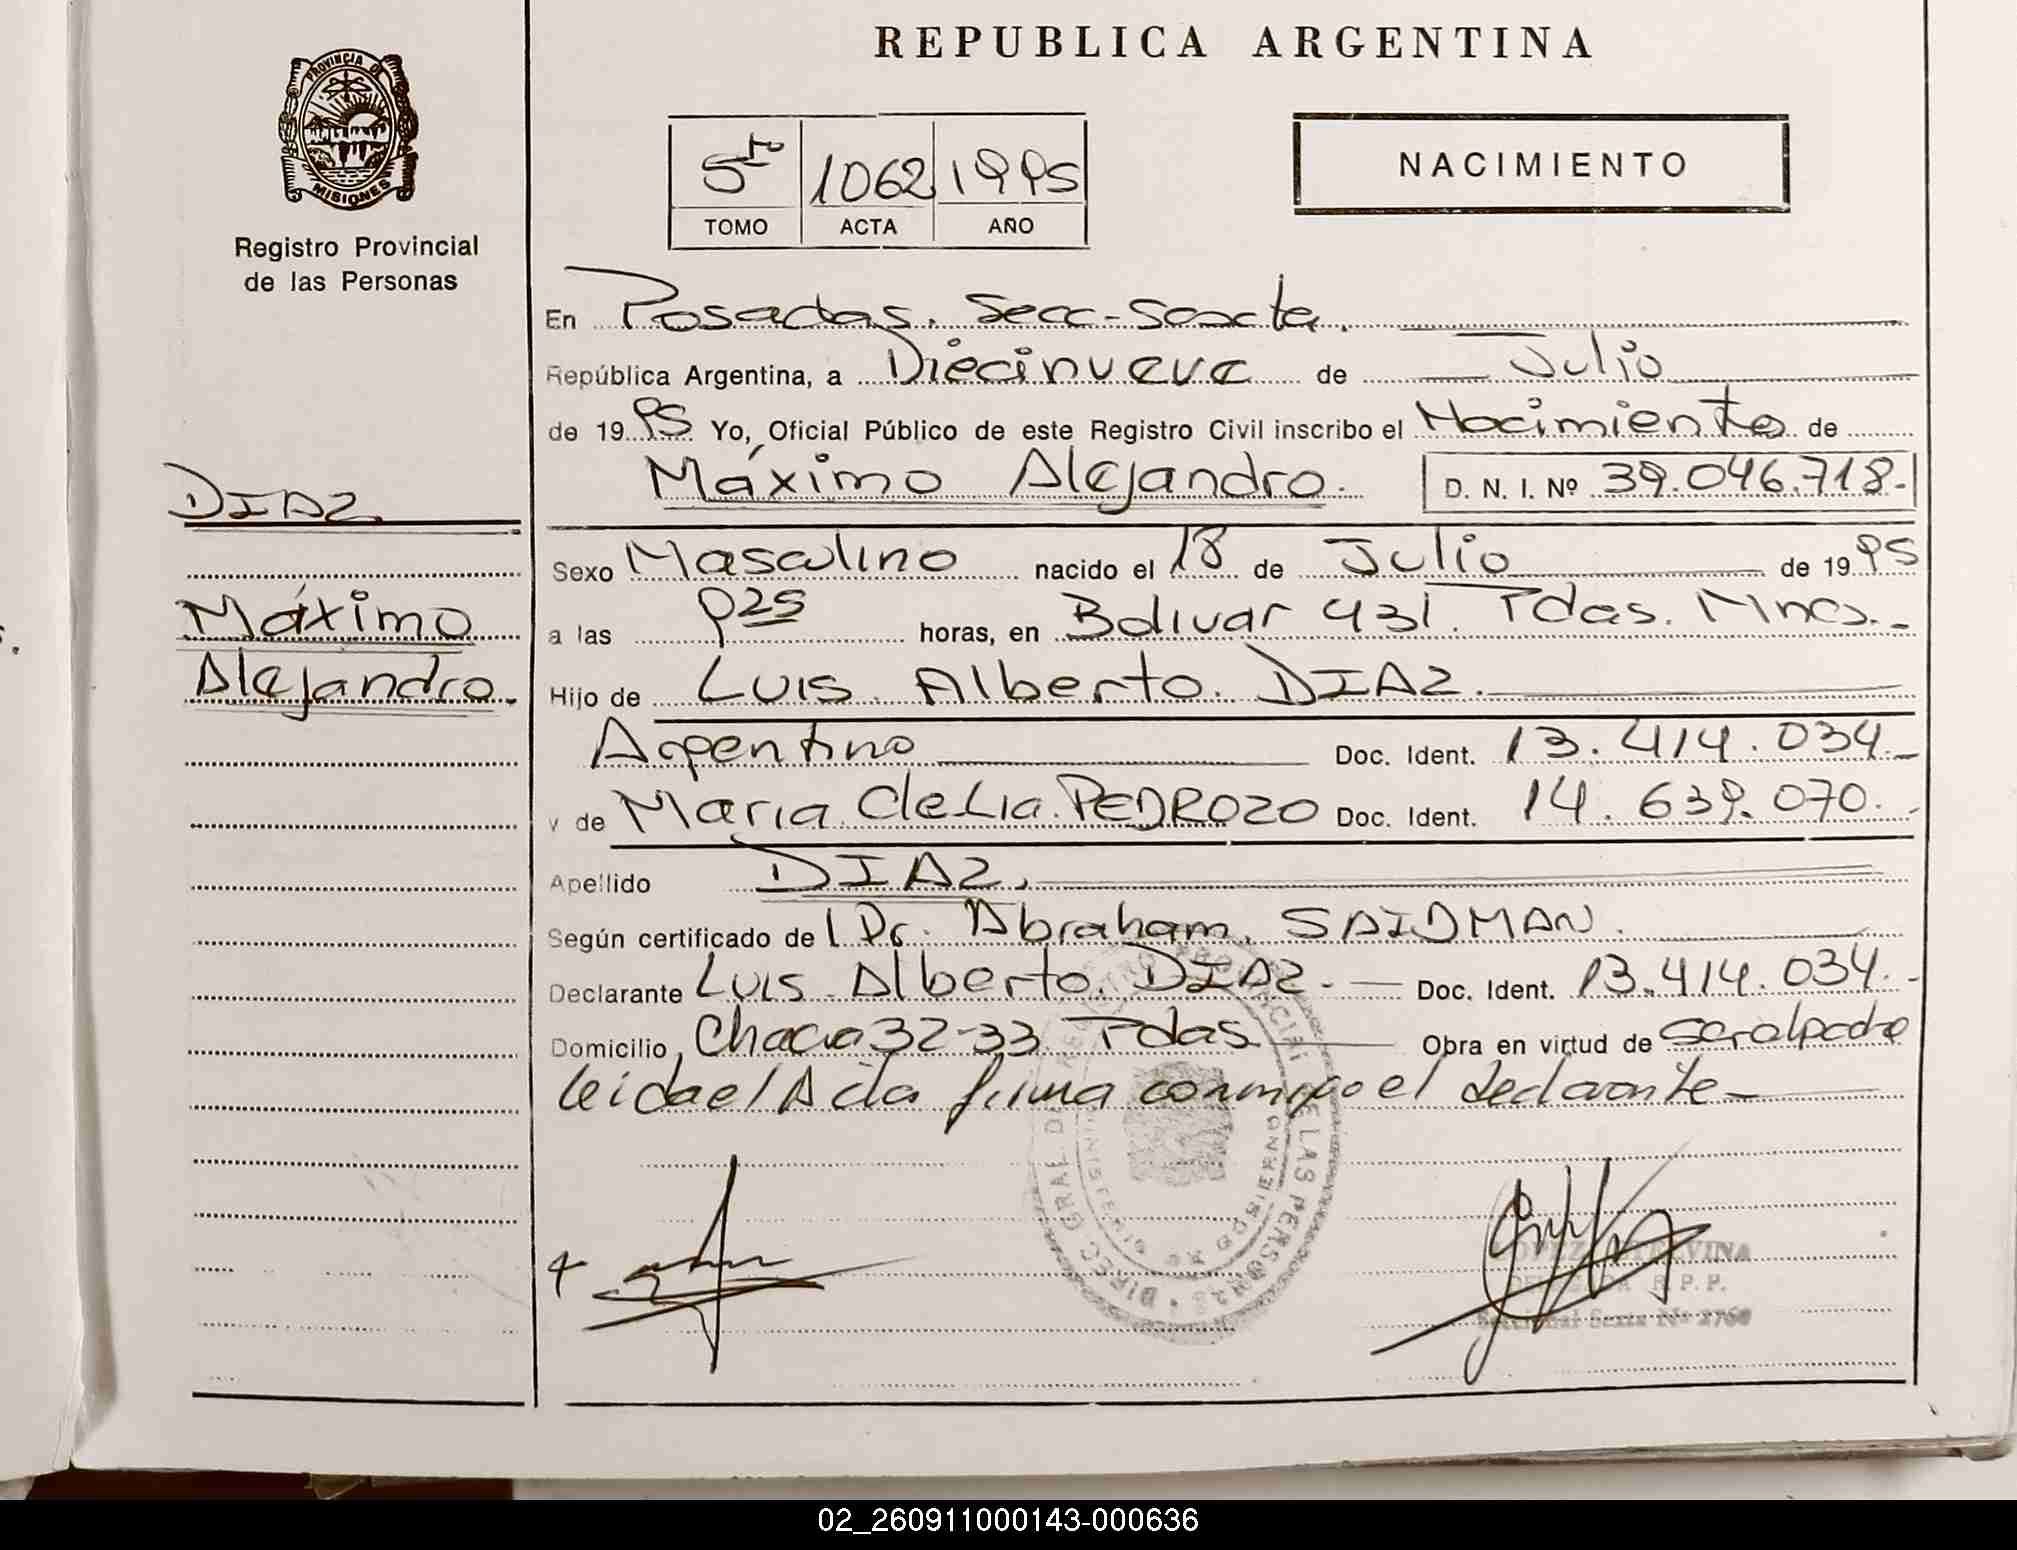 REPUBLICA ARGENTINA
PROVINCIA DE
MISIONES
Registro Provincial
de las Personas
5to 1062 1995
TOMO ACTA AÑO
NACIMIENTO
En Posadas. Secc-Sexta.
República Argentina, a Diecinueve de Julio
de 1995 Yo, Oficial Público de este Registro Civil inscribo el Nacimiento de
Máximo Alejandro. D. N. I. Nº 39.046.718.-
DIAZ
Máximo
Alejandro.
Sexo Masculino nacido el 18 de Julio de 1995
a las 9 25 horas, en Bolivar 431. Pdas. Mnes.-
Hijo de Luis Alberto DIAZ.
Argentino Doc. Ident. 13.414.034.-
y de María Clelia PEDROZO Doc. Ident. 14.639.070.-
Apellido DIAZ.
Según certificado del Dr. Abraham SAIDMAN.
Declarante Luis Alberto DIAZ.- Doc. Ident. 13.414.034.-
Domicilio, Chacra 32-33 Pdas Obra en virtud de ser el padre
leida el Acta firma conmigo el declarante-
DIREC GRAL DE REGISTRO PROVINCIAL DE LAS PERSONAS
LOPEZ ETELVINA
DELEGADA R.P.P.
Seccional Sexta Nº 2760
02_260911000143-000636